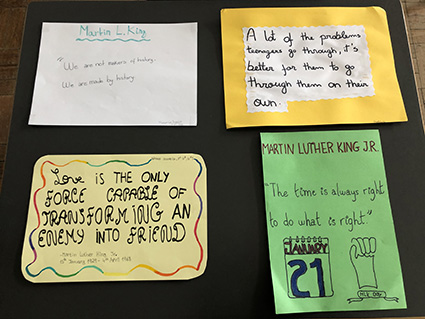 Martin L. King
"We are not makers of history.
We are made by history.
A lot of the problems
teenagers go through, it's
better for them to go
through them on their
own.
Love IS THE ONLY
FORCE CAPABLE OF
TRANSFORMING AN
ENEMY INTO FRIEND
Martin Luther King Jr.
MARTIN LUTHER KING J.R.
"The time is always right
to do what is right."
JANUARY
21
MLK DAY